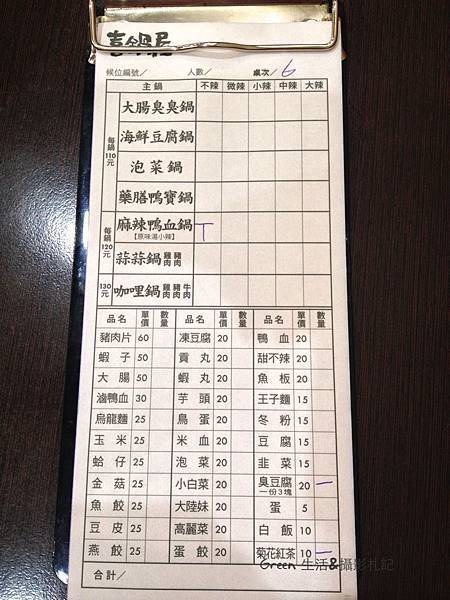 喜鍋屋
候位編號/ 人數/ 桌次/ 6
主鍋 不辣 微辣 小辣 中辣 大辣
每鍋110元
大腸臭臭鍋
海鮮豆腐鍋
泡菜鍋
藥膳鴨寶鍋
每鍋120元
麻辣鴨血鍋 T
【原味湯小辣】
蒜蒜鍋 雞肉 豬肉
130元
咖哩鍋 雞肉 豬肉 牛肉
品名 單價 數量 品名 單價 數量 品名 單價 數量
豬肉片 60 凍豆腐 20 鴨血 20
蝦子 50 貢丸 20 甜不辣 20
大腸 50 蝦丸 20 魚板 20
滷鴨血 30 芋頭 20 王子麵 15
烏龍麵 25 鳥蛋 20 冬粉 15
玉米 25 米血 20 豆腐 15
蛤仔 25 泡菜 20 韭菜 15
金菇 25 小白菜 20 臭豆腐 20 一
一份3塊
魚餃 25 大陸妹 20 蛋 5
豆皮 25 高麗菜 20 白飯 10
燕餃 25 蛋餃 20 菊花紅茶 10 一
合計/
Green 生活&攝影札記